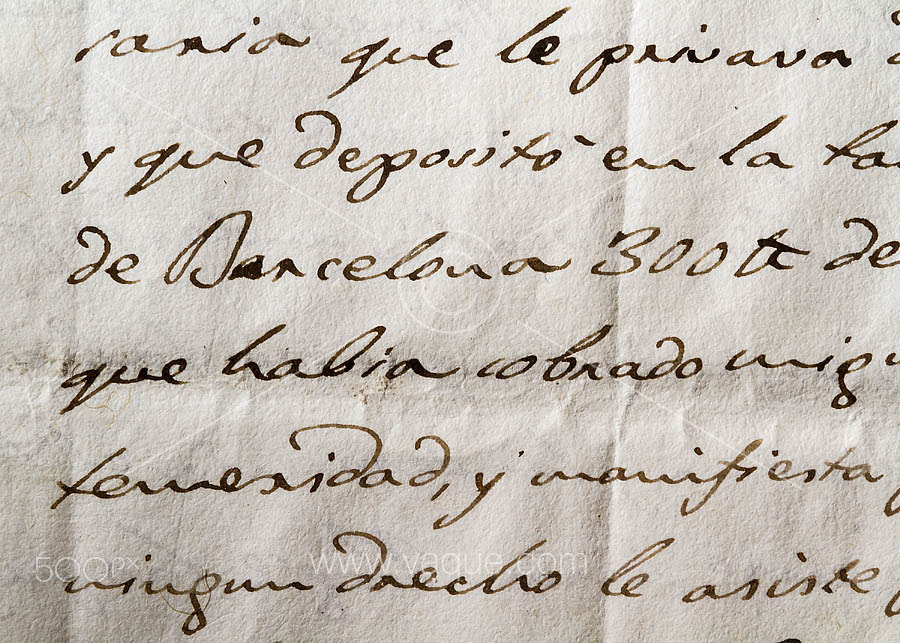 saria que le privava d
y que depositó en la ta
de Barcelona 300 ₶ de
que habia cobrado mig
temeridad, y manifiesta
ningun drecho le asiste
500PX www.vague.com